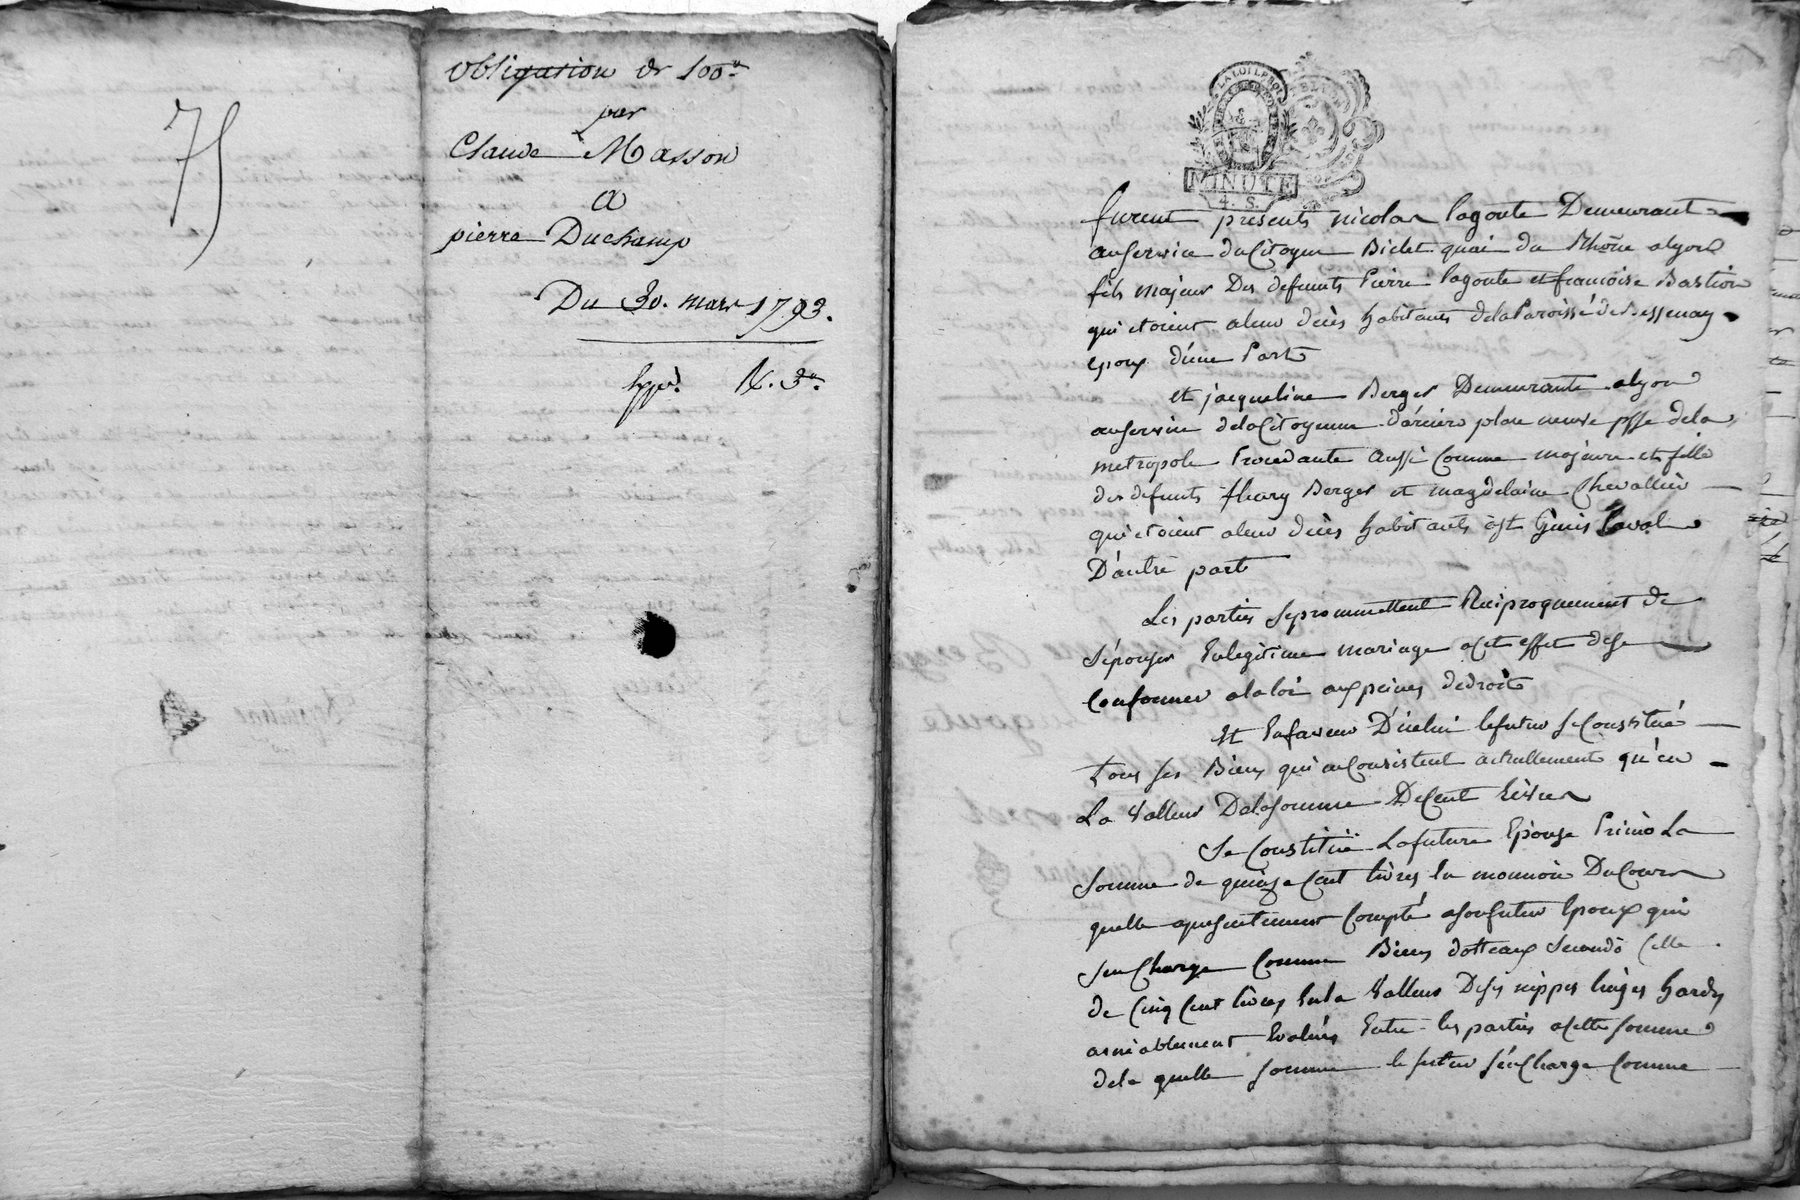 75
Obligation de 100ᵗᵗ
par
Claude Masson
a
pierre Duchamp
Du 30. mars 1793.
3ᵗᵗ
LA LOI LE ROI
MINUTE
4. S.
furent presents nicolas lagoute Demeurant
auservice duCitoyen Biclet quai du Rhône alyon
fils majeur Des defunts Pierre lagoute et françoise Bastion
qui etoient aleur décès habitants delaParoisse deBessenay
epoux d'une Part
et jacqueline Berger Demeurante alyon
auservice delaCitoyenne darriere place neuve psse dela
metropole Procedante aussi Comme majeure et fille
des defunts Berger et magdelaine Chevallier
qui etoient aleur décès habitants à St Genis Laval
D'autre part
Les parties sepromettent Reciproquement de
s'épouser Enlegitime mariage acet effet dese
Conformer alaloi aux peines dedroit
Et Enfaveur D'icelui lefutur seConstitué
tous ses Biens qui neConsistent actuellement qu'en
La Valleur DelaSomme DeCent livres
Se Constitüe Lafuture Epouse Primò La
Somme de quinze Cent livres En monnoie DuCours
quelle apresentement Compté asonfutur Epoux qui
s'en Charge Comme Biens dotteaux Secundò Celle
de Cinq Cent livres Enla Valleur Deses nippes linges hardes
amiablement Evalués Entre les parties acette somme
dela quelle somme le futur s'en Charge Comme